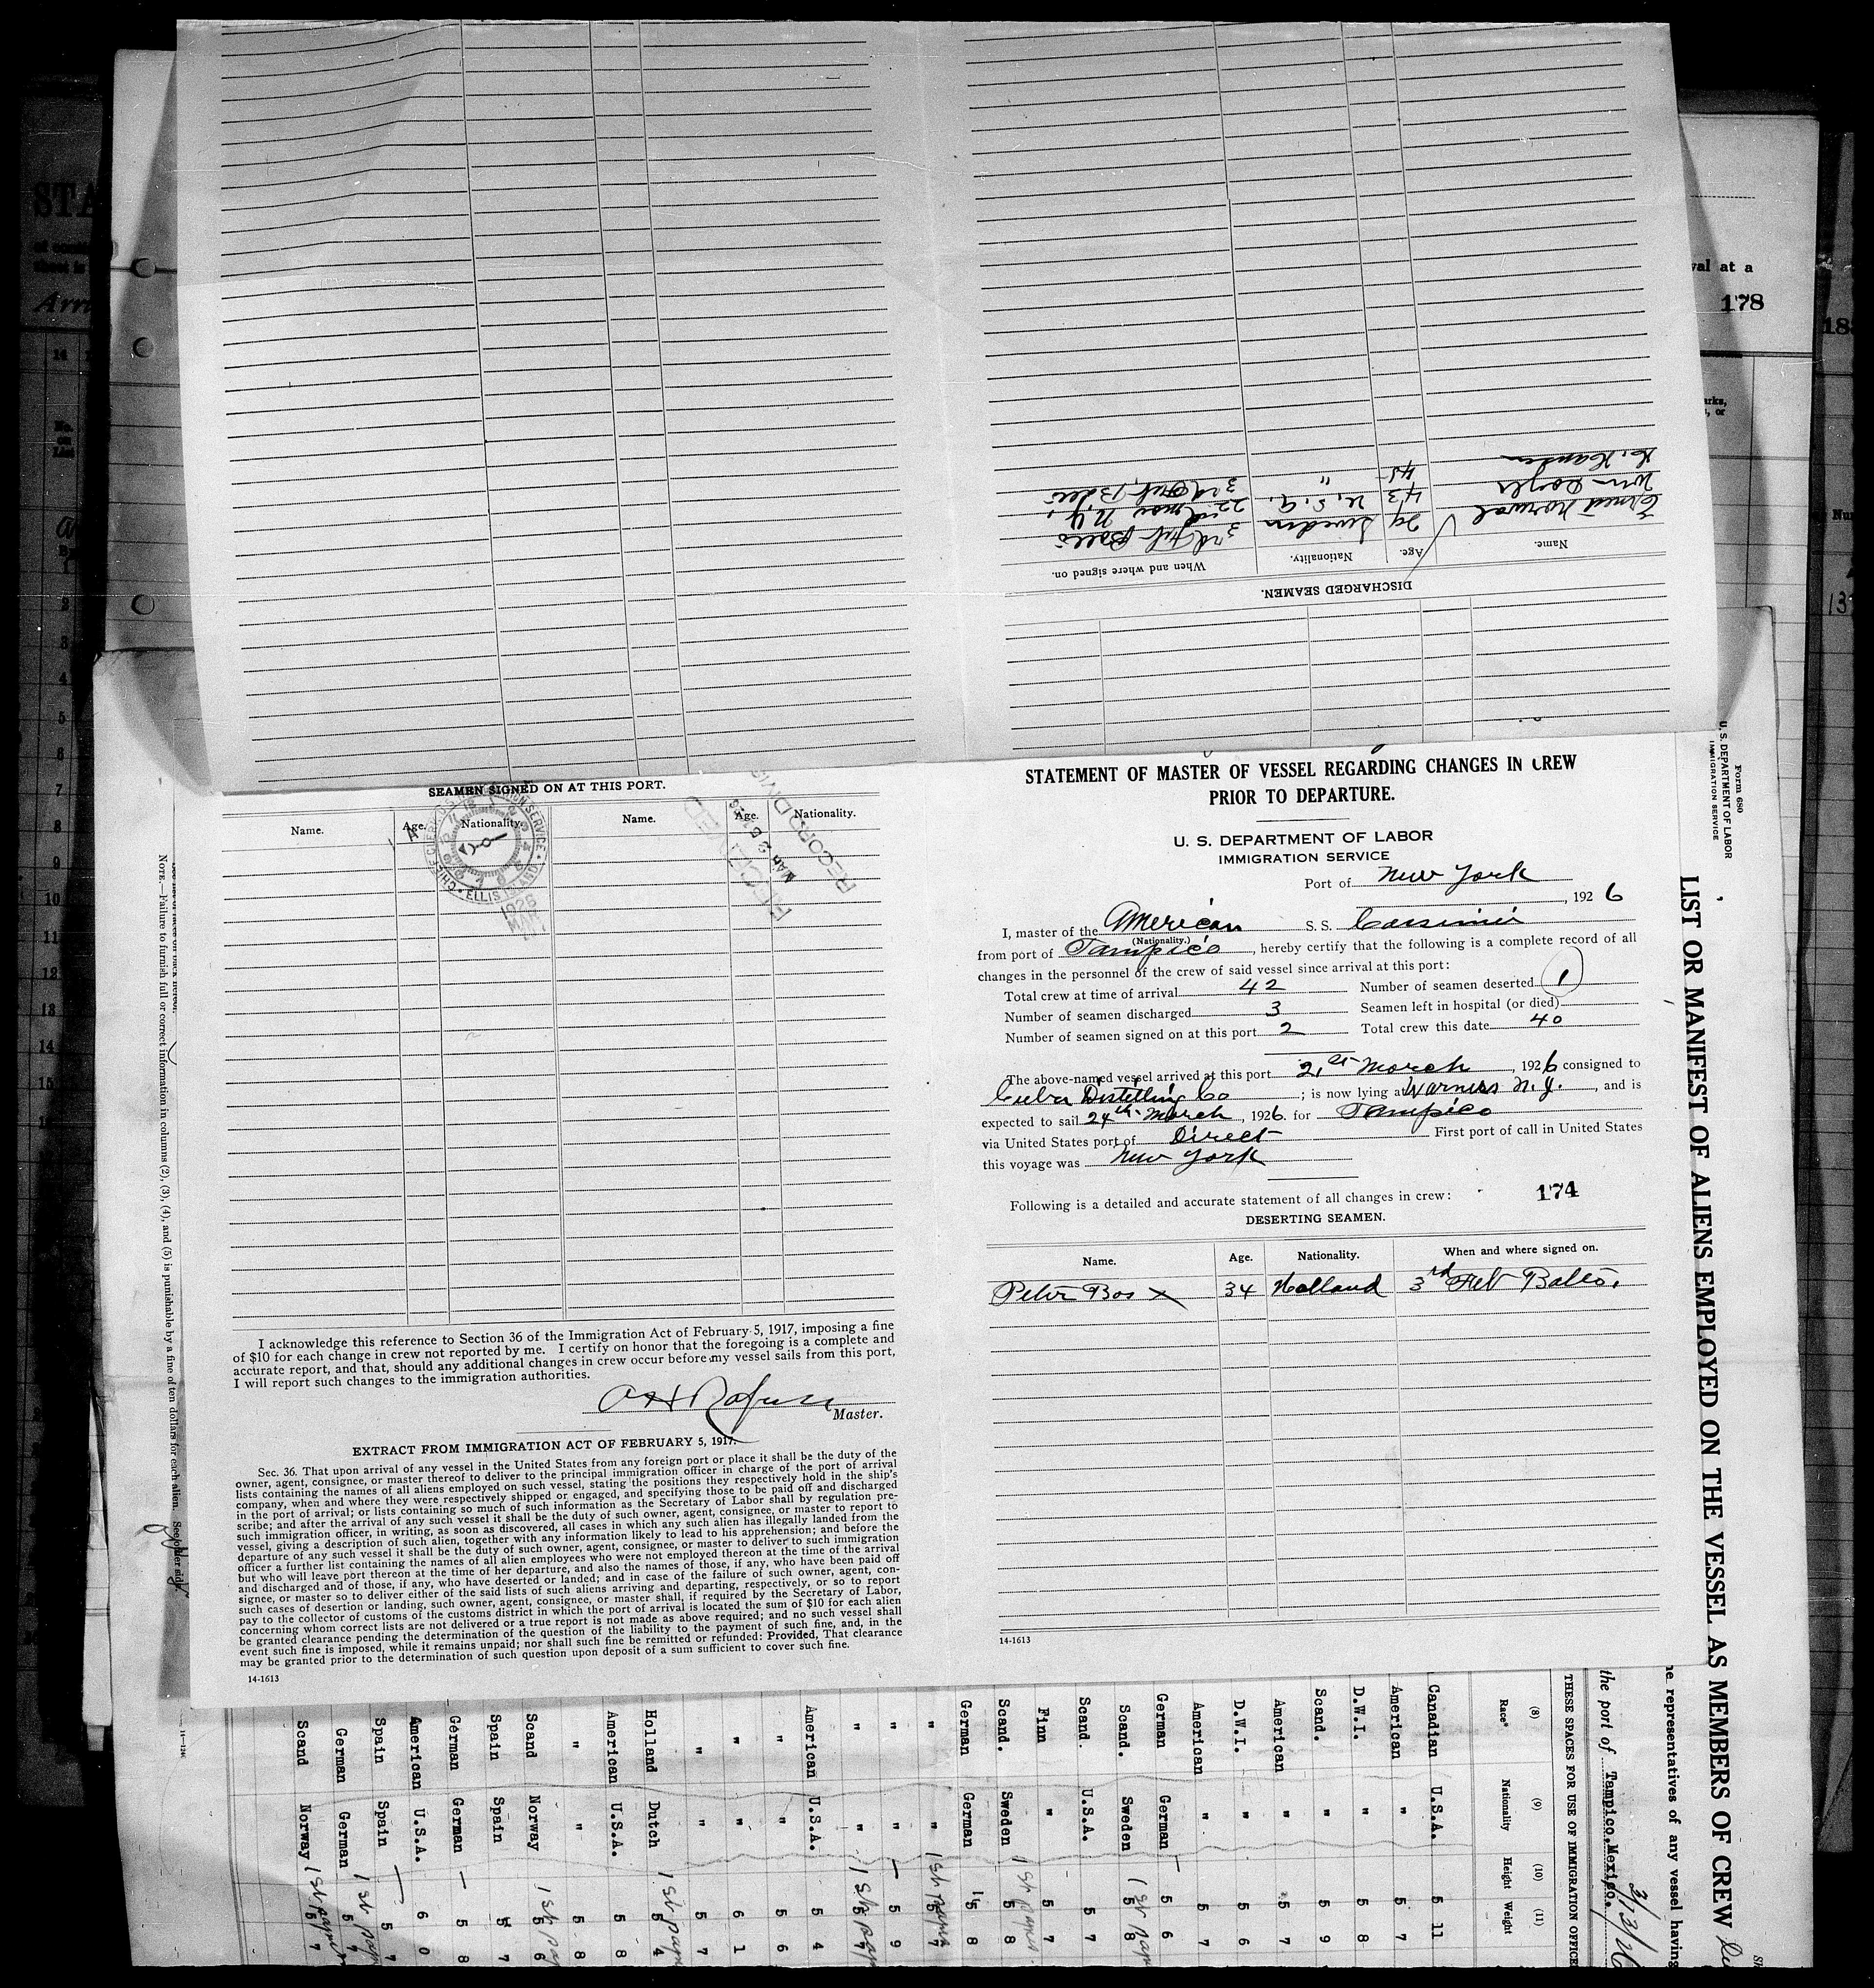 STATEMENT OF MASTER OF VESSEL REGARDING CHANGES IN CREW
PRIOR TO DEPARTURE.
U. S. DEPARTMENT OF LABOR
IMMIGRATION SERVICE
Port of New York
, 192 6
I, master of the American S. S. Cassimir
(Nationality.)
from port of Tampico, hereby certify that the following is a complete record of all
changes in the personnel of the crew of said vessel since arrival at this port:
Total crew at time of arrival 42 Number of seamen deserted 1
Number of seamen discharged 3 Seamen left in hospital (or died)
Number of seamen signed on at this port 2 Total crew this date 40
The above-named vessel arrived at this port 21st March, 1926 consigned to
Cuba Distilling Co; is now lying at Warners N.J., and is
expected to sail 24th March, 1926 for Tampico
via United States port of Direct First port of call in United States
this voyage was New York
Following is a detailed and accurate statement of all changes in crew: 174
DESERTING SEAMEN.
Name. Age. Nationality. When and where signed on.
Peter Bos x 34 Holland 3rd Feb Balto.
14-1613
DISCHARGED SEAMEN.
Name. Age. Nationality. When and where signed on.
Ernest Norwal 29 Sweden 3rd Feb Balto
Wm Doyle 43 U.S.A. 22nd Mar N.Y.
Hansen 45 " 3rd Feb. Balto
SEAMEN SIGNED ON AT THIS PORT.
Name. Age. Nationality. Name. Age. Nationality.
ELLIS ISLAND
1926
MAR
RECORD DIVIS
I acknowledge this reference to Section 36 of the Immigration Act of February 5, 1917, imposing a fine
of $10 for each change in crew not reported by me. I certify on honor that the foregoing is a complete and
accurate report, and that, should any additional changes in crew occur before my vessel sails from this port,
I will report such changes to the immigration authorities.
Master.
EXTRACT FROM IMMIGRATION ACT OF FEBRUARY 5, 1917.
Sec. 36. That upon arrival of any vessel in the United States from any foreign port or place it shall be the duty of the
owner, agent, consignee, or master thereof to deliver to the principal immigration officer in charge of the port of arrival
lists containing the names of all aliens employed on such vessel, stating the positions they respectively hold in the ship's
company, when and where they were respectively shipped or engaged, and specifying those to be paid off and discharged
in the port of arrival; or lists containing so much of such information as the Secretary of Labor shall by regulation pre-
scribe; and after the arrival of any such vessel it shall be the duty of such owner, agent, consignee, or master to report to
such immigration officer, in writing, as soon as discovered, all cases in which any such alien has illegally landed from the
vessel, giving a description of such alien, together with any information likely to lead to his apprehension; and before the
departure of any such vessel it shall be the duty of such owner, agent, consignee, or master to deliver to such immigration
officer a further list containing the names of all alien employees who were not employed thereon at the time of the arrival
but who will leave port thereon at the time of her departure, and also the names of those, if any, who have been paid off
and discharged and of those, if any, who have deserted or landed; and in case of the failure of such owner, agent, con-
signee, or master so to deliver either of the said lists of such aliens arriving and departing, respectively, or so to report
such cases of desertion or landing, such owner, agent, consignee, or master shall, if required by the Secretary of Labor,
pay to the collector of customs of the customs district in which the port of arrival is located the sum of $10 for each alien
concerning whom correct lists are not delivered or a true report is not made as above required; and no such vessel shall
be granted clearance pending the determination of the question of the liability to the payment of such fine, and, in the
event such fine is imposed, while it remains unpaid; nor shall such fine be remitted or refunded: Provided, That clearance
may be granted prior to the determination of such question upon deposit of a sum sufficient to cover such fine.
14-1613
Form 680
U. S. DEPARTMENT OF LABOR
IMMIGRATION SERVICE
LIST OR MANIFEST OF ALIENS EMPLOYED ON THE VESSEL AS MEMBERS OF CREW
e representatives of any vessel having
the port of Tampico, Mexico. 3/13/26
THESE SPACES FOR USE OF IMMIGRATION OFFICE
(8) (9) (10) (11)
Race* Nationality Height Weight
Canadian U.S.A. 5 11
American " 5 7
D.W.I. " 5 8
Scand. " 5 9
American " 5 7
D.W.I. " 5 6
American " 5 7
German German 5 6
Scand. Sweden 5 8
Scand. U.S.A. 5 7
Finn " 5 7
Scand. Sweden 5 8
German German 5 8
" " 5 7
" " 5 9
" " 5 7
American U.S.A. 5 4
" " 5 6
" " 6 1
" " 5 7
Holland Dutch 5 4
American U.S.A. 5 8
" " 5 8
Scand Norway 5 6
Spain Spain 5 7
German German 5 8
American U.S.A. 6 0
Spain Spain 5 7
German German 5 7
Scand Norway 5 7
NOTE.—Failure to furnish full or correct information in columns (2), (3), (4), and (5) is punishable by a fine of ten dollars for each alien. See other side
val at a
178